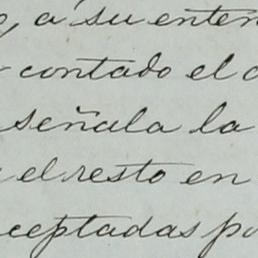 , a su enten
contado el c
señala la
el resto en
ceptadas po